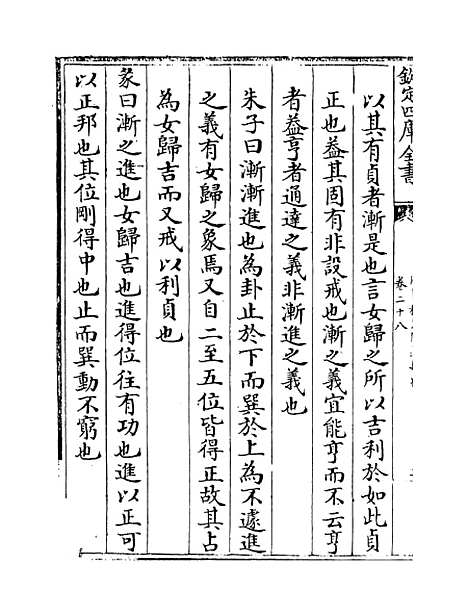 欽定四庫全書
卷二十八
以其有貞者漸是也言女歸之所以吉利於如此貞
正也葢其固有非設戒也漸之義宜能亨而不云亨
者葢亨者通達之義非漸進之義也
朱子曰漸漸進也為卦止於下而巽於上為不遽進
之義有女歸之象焉又自二至五位皆得正故其占
為女歸吉而又戒以利貞也
彖曰漸之進也女歸吉也進得位往有功也進以正可
以正邦也其位剛得中也止而巽動不窮也